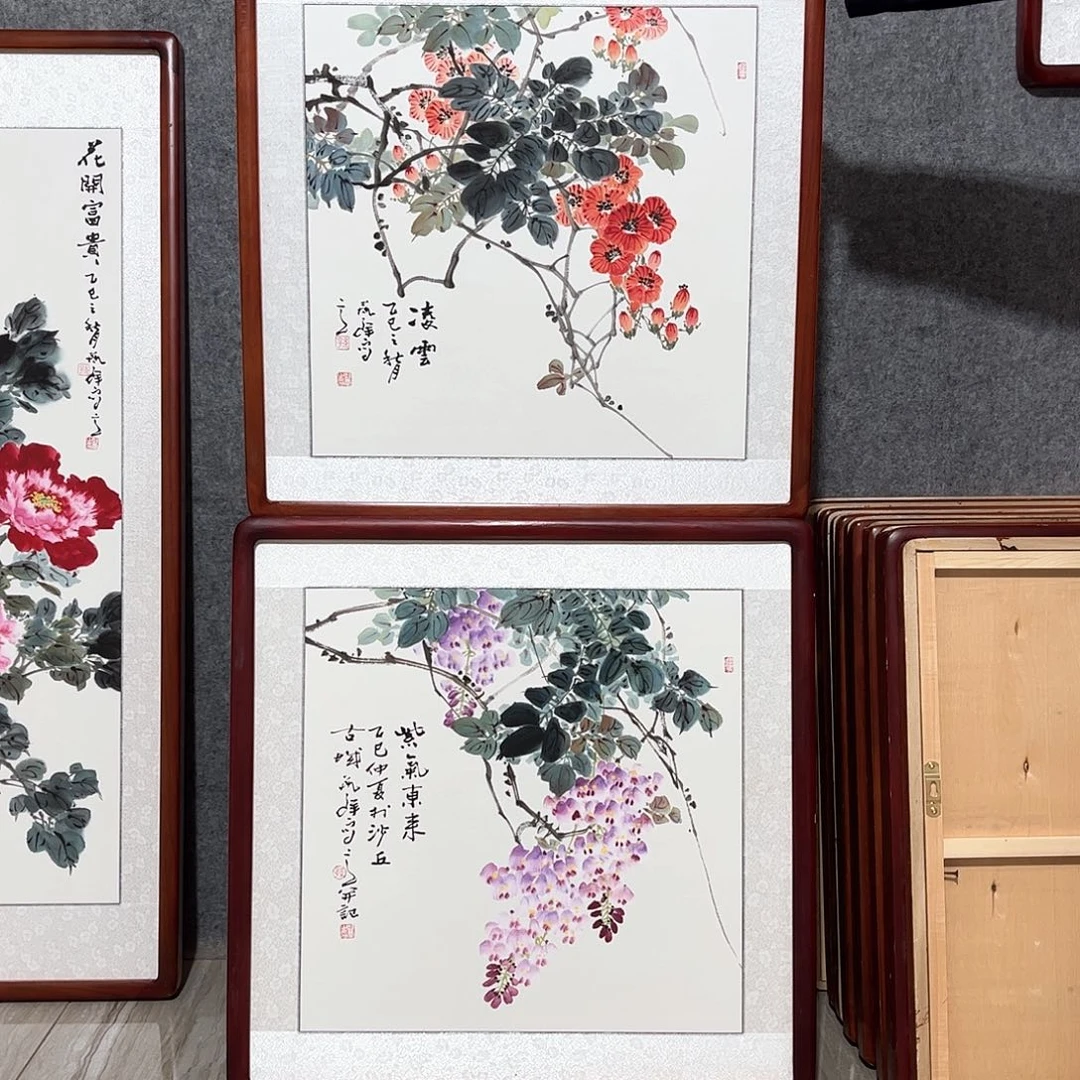 花開富貴
乙巳之秋月
凌雲
乙巳之秋月
紫氣東來
乙巳仲夏於沙丘
古城
並記